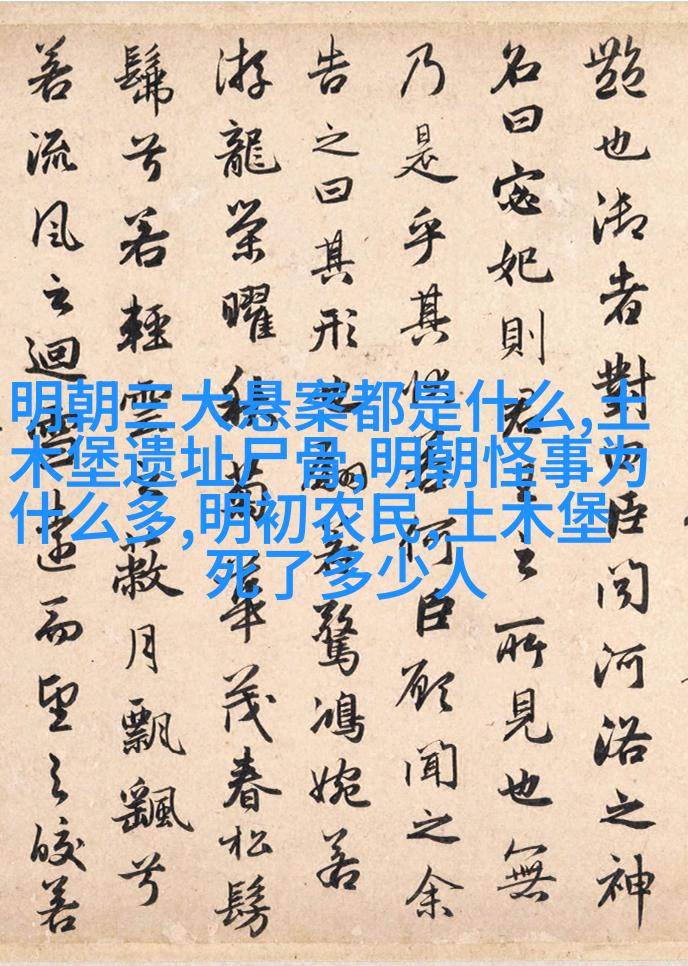 艷也御者對曰臣聞河洛之神
名曰宓妃則君王之所見也無
乃是乎其狀若何臣願聞之余
告之曰其形也翩若驚鴻婉若
游龍榮曜秋菊華茂春松髣
髴兮若輕雲之蔽月飄颻兮
若流風之迴雪遠而望之皎若
明朝三大悬案都是什么,土
木堡遗址尸骨,明朝怪事为
什么多,明初农民,土木堡
死了多少人